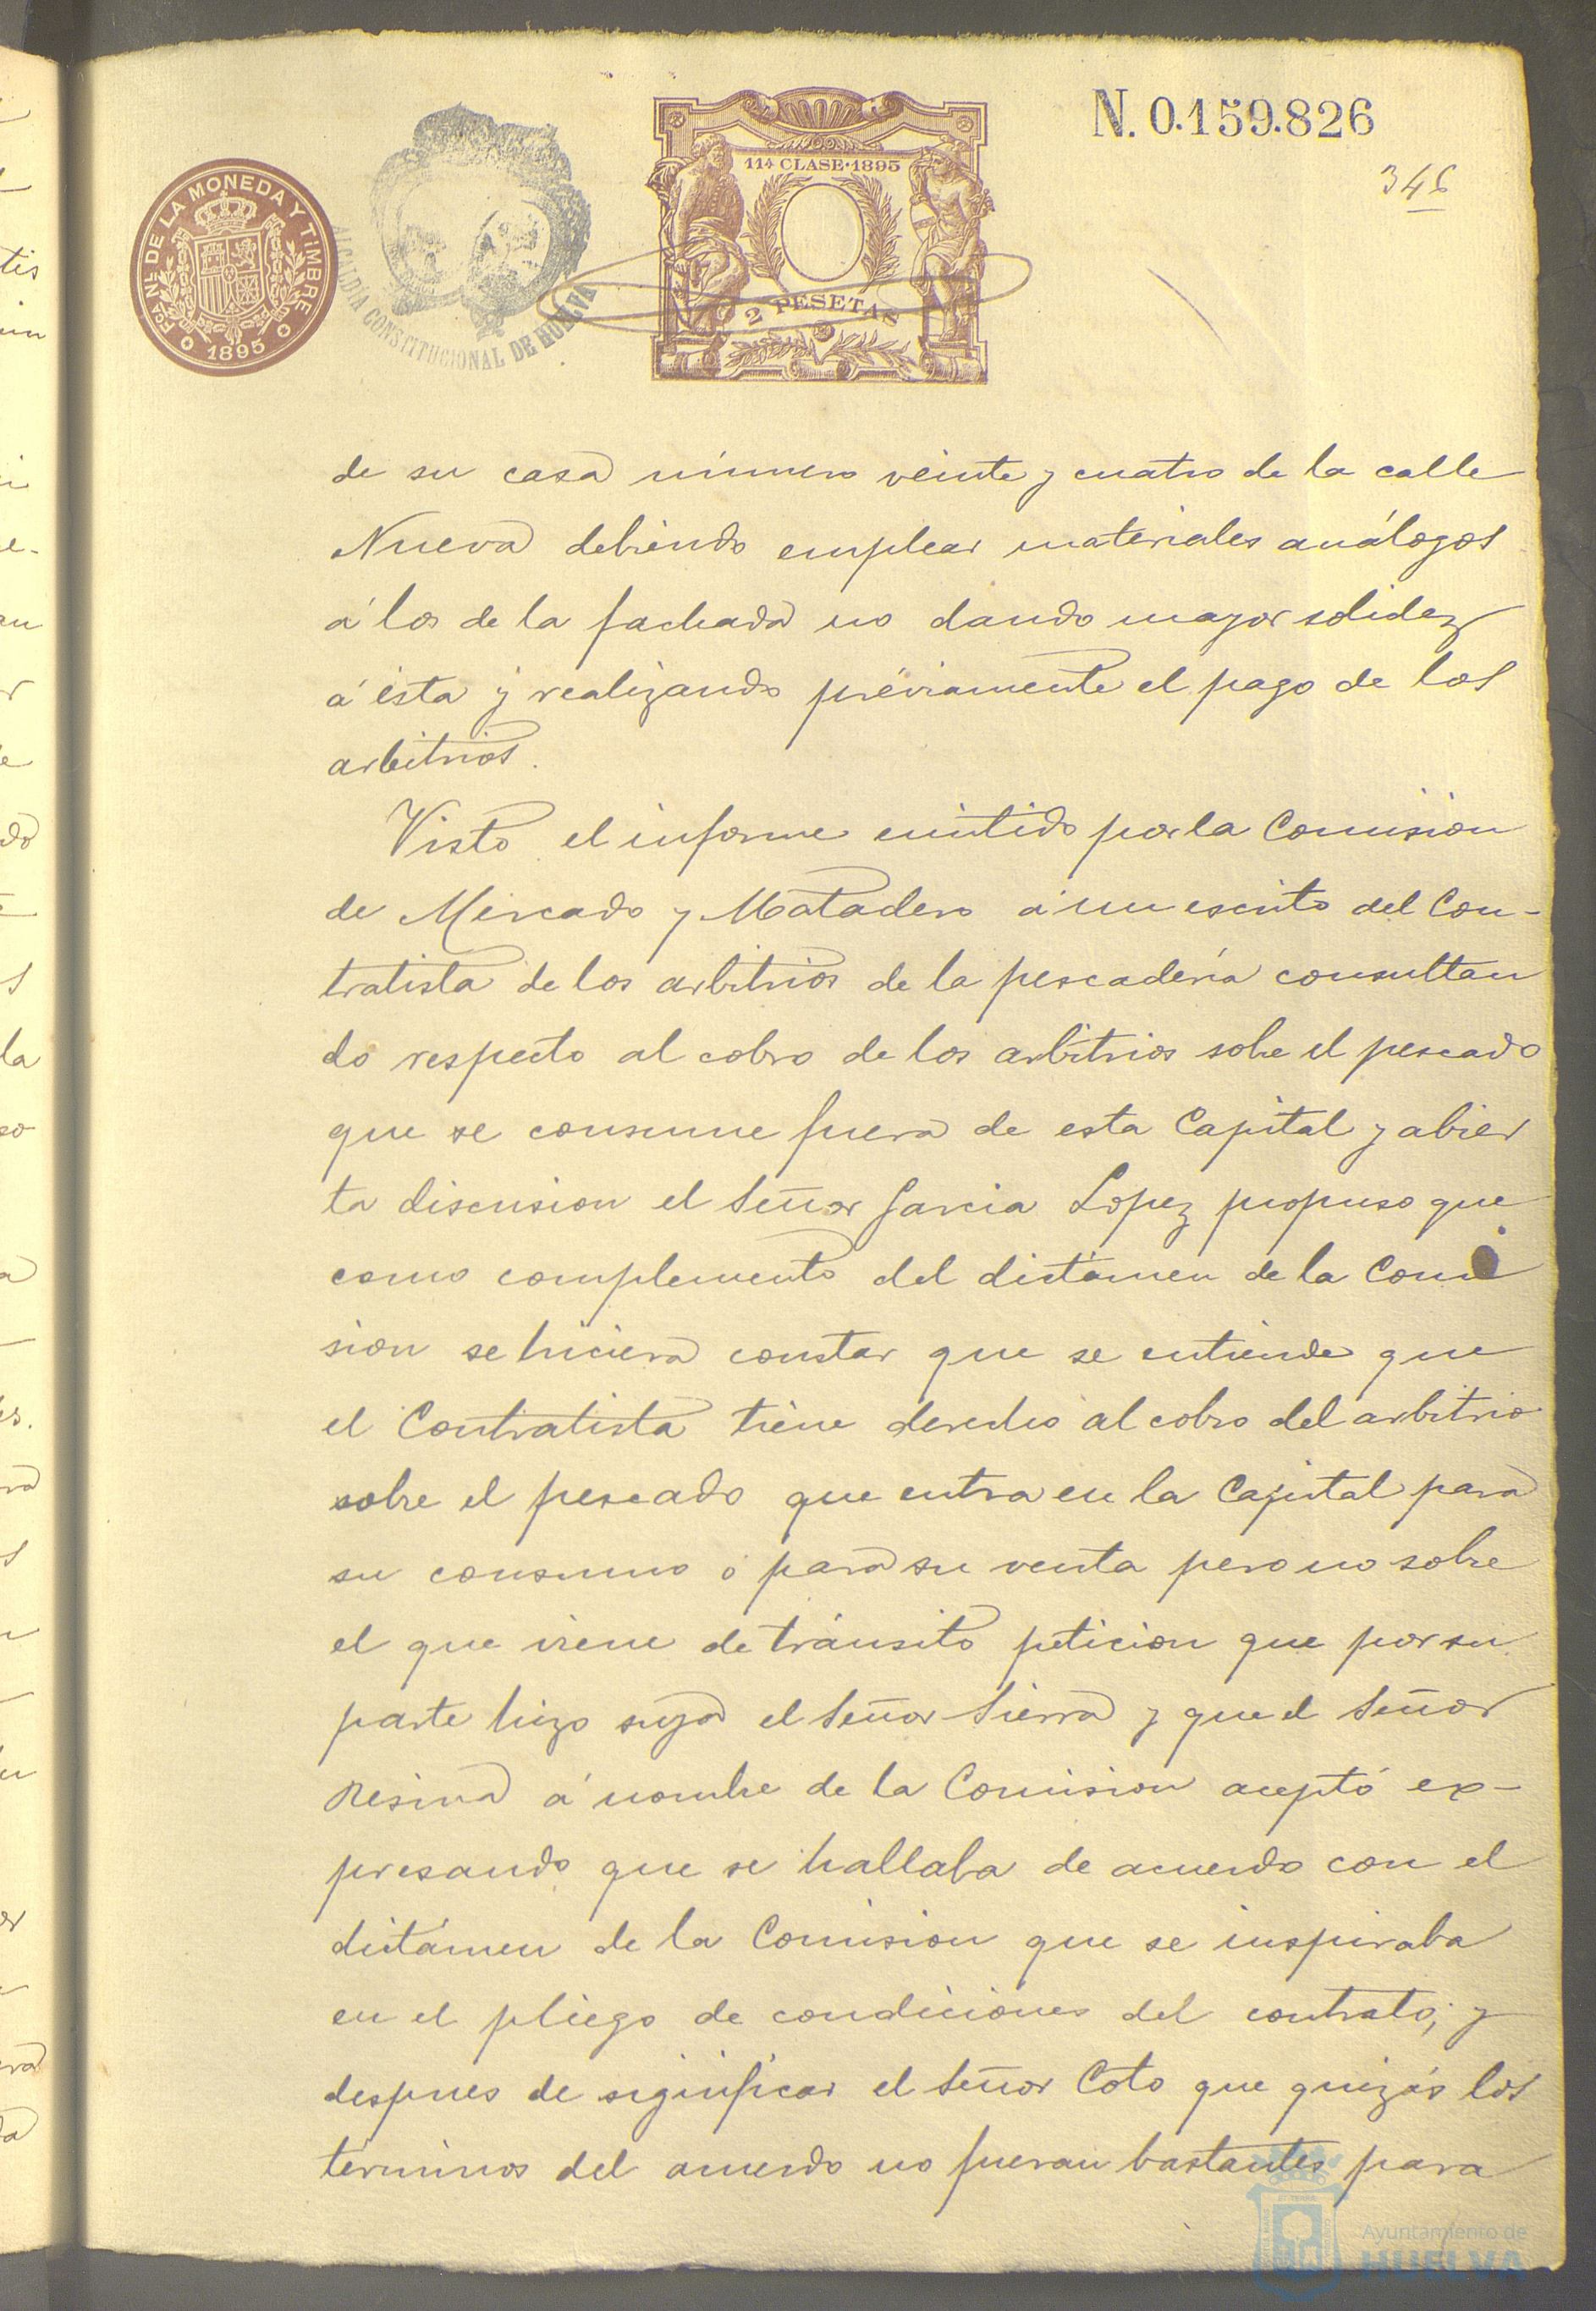 N. 0.159.826
346
FCA. NL. DE LA MONEDA Y TIMBRE
1895
ALCALDÍA CONSTITUCIONAL DE HUELVA
11ª CLASE·1895
2 PESETAS
de su casa número veinte y cuatro de la calle
Nueva debiendo emplear materiales análogos
á los de la fachada no dando mayor solidez
á ésta y realizando préviamente el pago de los
arbitrios.
Visto el informe emitido por la Comision
de Mercado y Matadero á un escrito del Con-
tratista de los arbitrios de la pescadería consultan
do respecto al cobro de los arbitrios sobre el pescado
que se consume fuera de esta Capital y abier
ta discusion el Señor Garcia Lopez propuso que
como complemento del dictámen de la Comi
sion se hiciera constar que se entiende que
el Contratista tiene derecho al cobro del arbitrio
sobre el pescado que entra en la Capital para
su consumo ó para su venta pero no sobre
el que viene de tránsito peticion que por su
parte hizo suya el Señor Sierra y que el Señor
Resina á nombre de la Comision aceptó ex-
presando que se hallaba de acuerdo con el
dictámen de la Comision que se inspiraba
en el pliego de condiciones del contrato; y
despues de significar el Señor Coto que quizás los
términos del acuerdo no fueran bastantes para
Ayuntamiento de
HUELVA